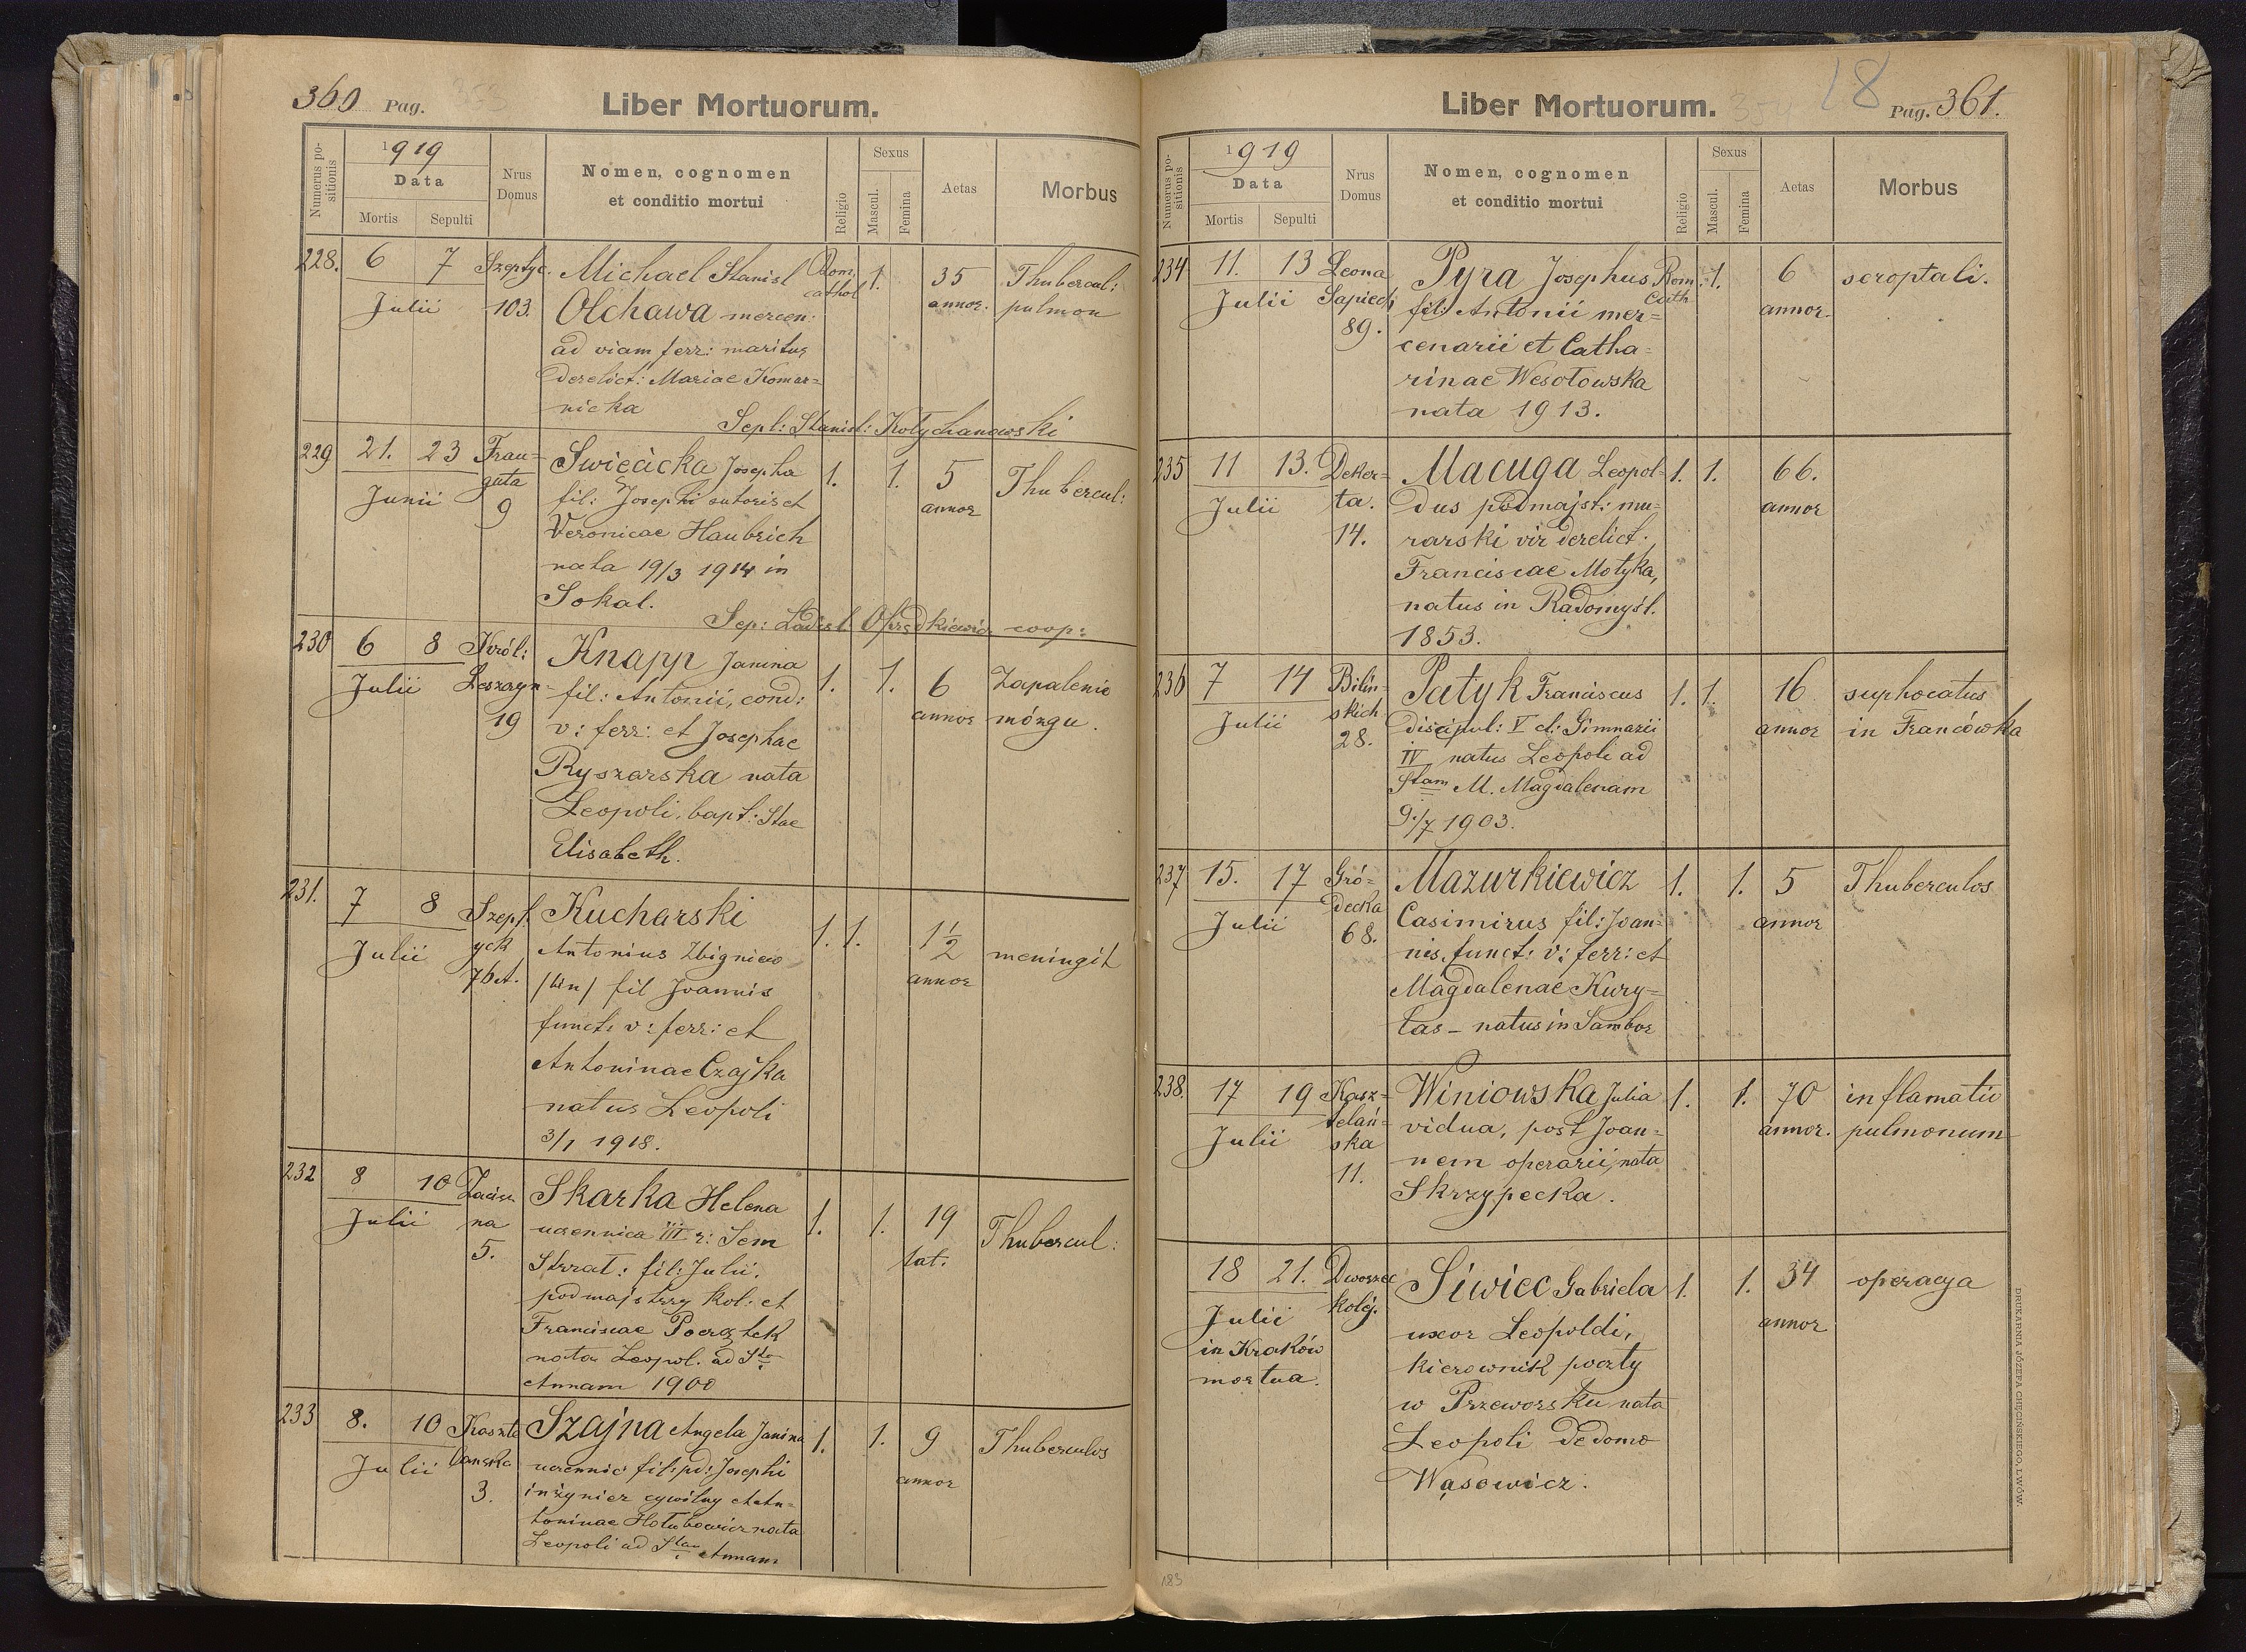 360 Pag. 353
Liber Mortuorum.
Numerus positionis
1919
Data
Mortis Sepulti
Nrus Domus
Nomen, cognomen
et conditio mortui
Religio
Sexus
Mascul. Femina
Aetas
Morbus
228. 6 7 Szeptyc. Michael Stanisl Rom. 1. 35 Thubercul:
Julii 103. Olchawa mercen: cathol annor. pulmon
ad viam ferr: maritus
derelict: Mariae Komar=
nicka
Sepl: Stanisl: Kotychanowski
229 21. 23 Frau= Swiecicka Josepha 1. 1. 5 Thubercul:
Junii guta fil: Josephi sutoris et annor
9 Veronicae Haubrich
nata 19/3 1914 in
Sokal.
Sep: Ladisl: coop:
230 6 8 Król: Knapp Janina 1. 1. 6 Zapalenie
Julii Leszczyn- fil: Antonii, cond: annor mózgu.
19 v: ferr: et Josephae
Ryszarska nata
Leopoli, bapt: Stae
Elisabeth.
231. 7 8 Szept. Kucharski 1. 1. 1½ meningit
Julii yck Antonius Zbigniew annor
fil Joannis
funct: v: ferr: et
Antoninae Czajka
natus Leopoli
3/1 1918.
232 8 10 Skarka Helena 1. 1. 19 Thubercul:
Julii na uczennica III r: Sem lat.
5. fil: Julii,
podmajstrzy kol: et
Franciscae
nata Leopol. ad Sta
Annam 1900
233 8. 10 Kaszte Szajna Angela Janina 1. 1. 9 Thuberculos
Julii lanska uczennic fil: pd: Josephi annor
3. inżynier cywilny et An=
toninae Hołubowicz nata
Leopoli ad Stam Annam
Liber Mortuorum. 354 18
Pag. 361.
Numerus positionis
1919
Data
Mortis Sepulti
Nrus Domus
Nomen, cognomen
et conditio mortui
Religio
Sexus
Mascul. Femina
Aetas
Morbus
234 11. 13 Leona Pyra Josephus Rom. 1. 6 scroptali.
Julii Sapiech fil: Antonii mer= Cath annor.
89. cenarii et Catha=
rinae Wesołowska
nata 1913.
235 11 13. Deker= Macuga Leopol= 1. 1. 66.
Julii ta. dus podmajst: mu= annor
14. rarski vir derelict.
Franciscae Motyka,
natus in Radomyśl.
1853.
236 7 14 Biliń= Patyk Franciscus 1. 1. 16 suphocatus
Julii skich discipul: V cl: Gimnazii annor in Francówka
28. IV natus Leopoli ad
Stam M. Magdalenam
9/7 1903.
237 15. 17 Gró= Mazurkiewicz 1. 1. 5 Thuberculos
Julii decka Casimirus fil: Joan= annor
68. nis, funct: v: ferr: et
Magdalenae Kury=
tas - natus in Sambor
238. 17 19 Kasz= Winiowska Julia 1. 1. 70 inflamatio
Julii telań= vidua, post Joan= annor. pulmonum
ska nem operarii, nata
11. Skrzypecka.
18 21. Dworzec Siwiec Gabriela 1. 1. 34 operacya
Julii kolej. uxor Leopoldi, annor
in Kraków kierownik poczty
mortua. w Przeworsku nata
Leopoli de domo
Wąsowicz.
DRUKARNIA JÓZEFA CHĘCIŃSKIEGO, LWÓW.
183